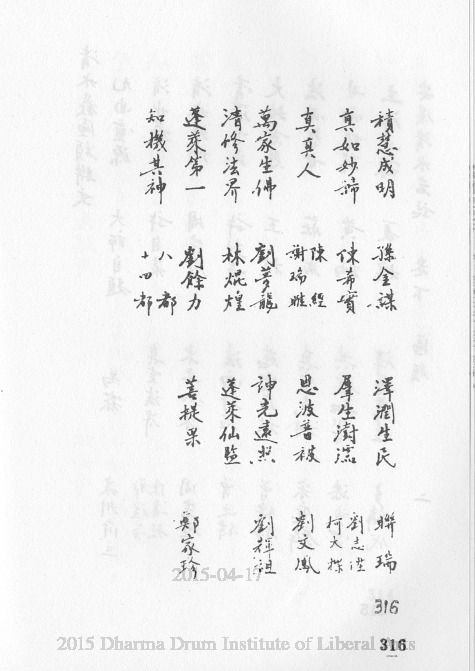 積慧成明 孫金謀 澤潤生民 聯瑞
真如妙諦 陳希實 羣生澍濡 劉志陞 柯大樑
真真人 陳經 謝瑞勝 恩波普被 劉文鳳
萬家生佛 劉夢龍 神光遠照 劉祥祖
清修法界 林焜煌 蓬萊仙監
蓬萊第一 劉餘力 菩提果 鄭家珍
知機其神 八都 十四都
316
2015-04-17
2015 Dharma Drum Institute of Liberal Arts
316